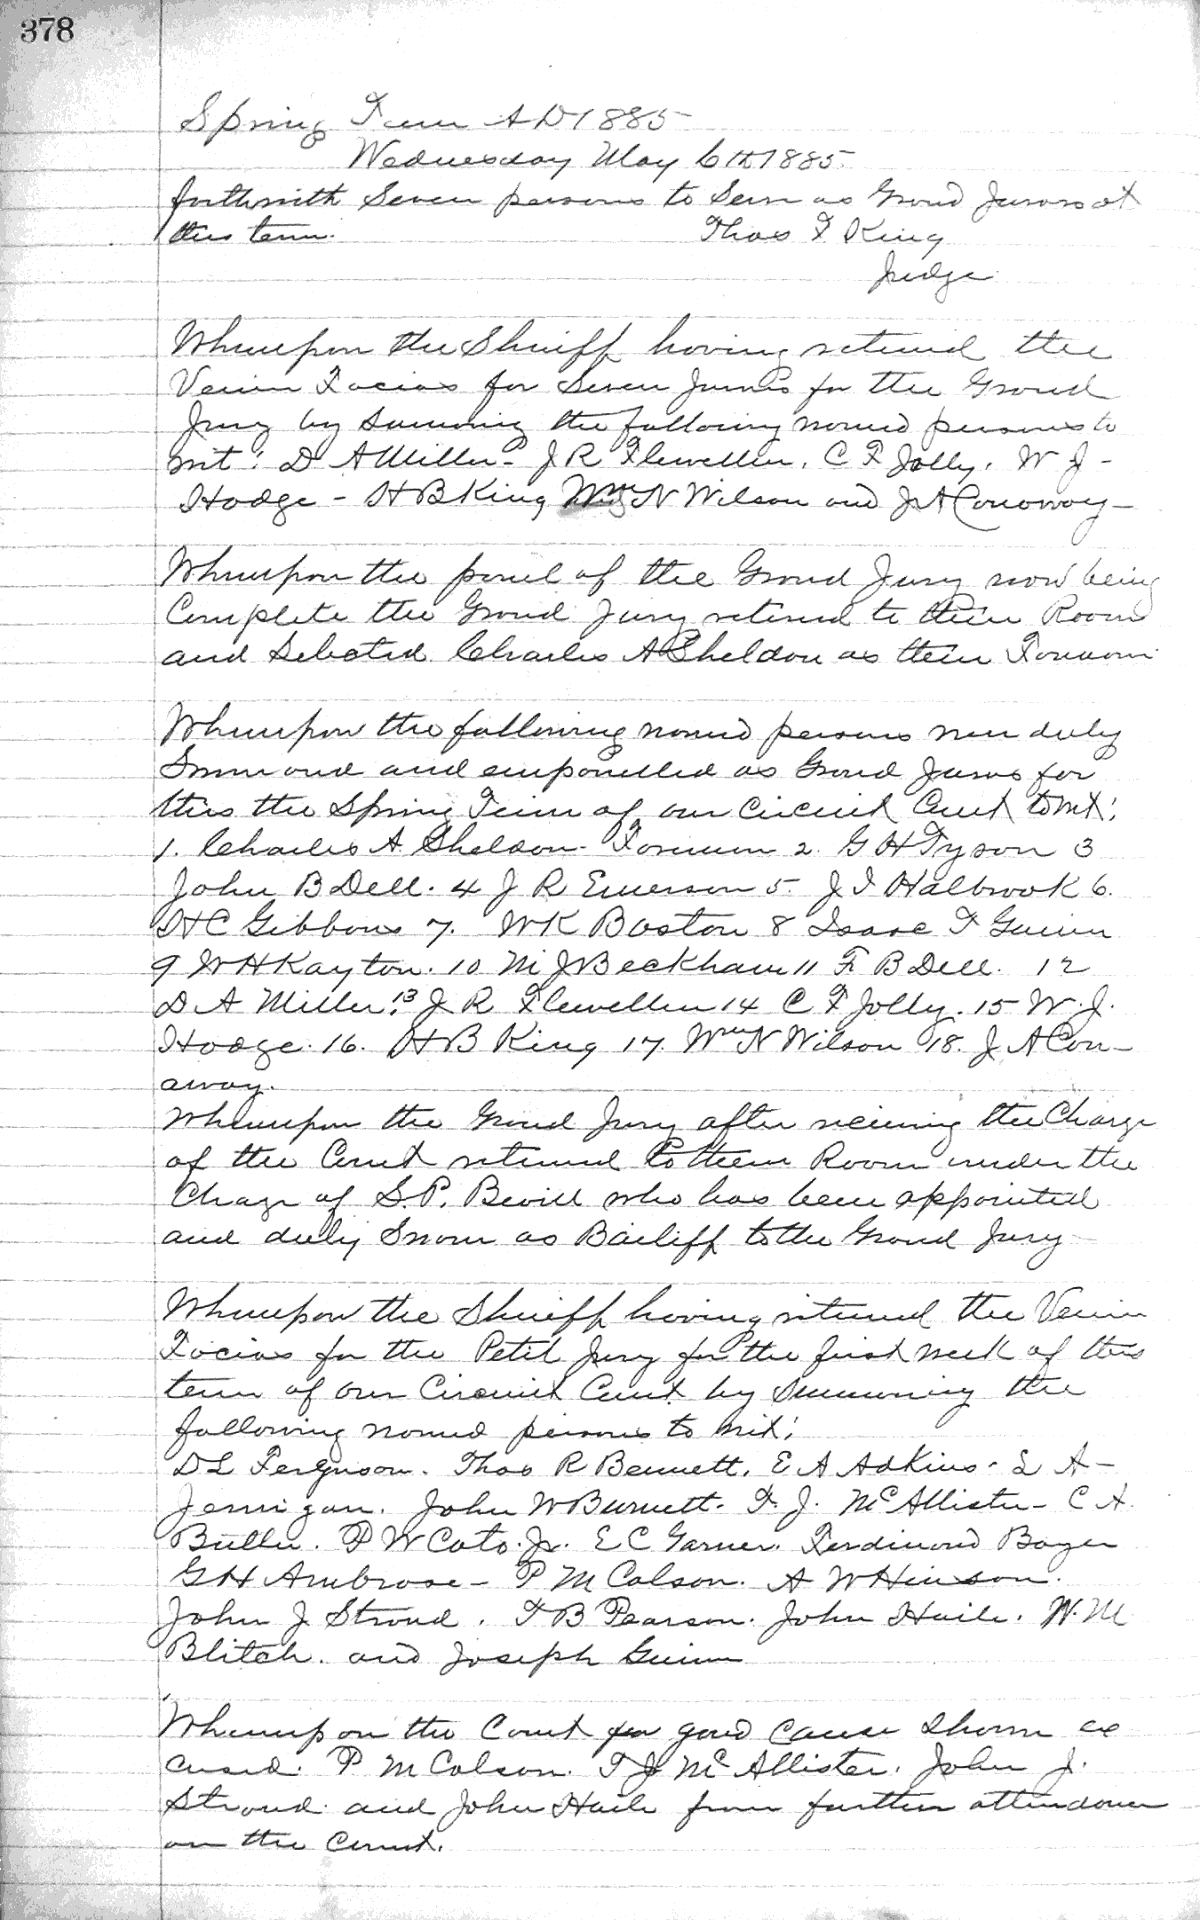 378
Spring Term A D 1885
Wednesday May 6th 1885
forthwith Seven persons to Serve as Grand Jurors at
this term. Thos F King
Judge
Whereupon the Sheriff having returned the
Venire Facias for Seven Jurors for the Grand
Jury by Summoning the following named persons to
wit: D A Miller - J R Flewellen. C F Jolly. W J -
Hodge - H B King Wm N Wilson and J A Conoway -
Whereupon the panel of the Grand Jury now being
Complete the Grand Jury retired to their Room
and Selected Charles A Sheldon as their Foreman
Whereupon the following named persons were duly
Sworn and empanelled as Grand Jurors for
this the Spring Term of our Circuit Court to wit:
1. Charles A. Sheldon - Foreman 2. G H Tyson 3
John B Dell. 4 J R Emerson 5. J I Halbrook 6.
H C Gibbons 7. W K Boston 8 Isaac F Guinn
9 W H Kayton. 10 M J Beckham 11 F B Dell. 12
D A Miller. 13 J R Flewellen 14 C F Jolly. 15 W. J.
Hodge. 16. H B King 17. Wm N Wilson 18. J A Con-
away.
Whereupon the Grand Jury after receiving the Charge
of the Court retired to their Room under the
Charge of S. P. Bevill who has been appointed
and duly Sworn as Bailiff to the Grand Jury
Whereupon the Sheriff having returned the Venire
Facias for the Petit Jury for the first week of this
term of our Circuit Court by Summoning the
following named persons to wit:
D L Ferguson. Thos R Bennett. E A Adkins. L A -
Jernigan. John W Burnett. F. J. McAllister - C A.
Butler. P W Cato. Jr. E C Garner. Ferdinand Bayer
G H Ambrose - P M Colson. A W Hinson.
John J Stroud. F B Pearson. John Haile. W. M
Blitch. and Joseph Guinn
Whereupon the Court for good cause shown ex
cused. P M Colson. F J McAllister. John J.
Stroud. and John Haile from further attendance
on the Court.